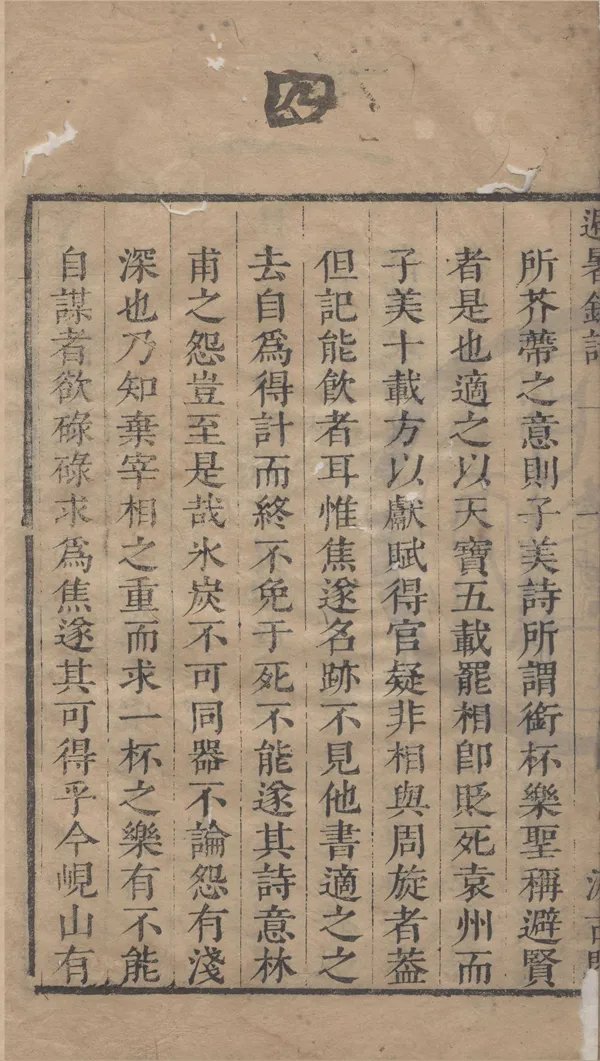 避暑錄話
所芥蔕之意則子美詩所謂銜杯樂聖稱避賢
者是也適之以天寶五載罷相卽貶死袁州而
子美十載方以獻賦得官疑非相與周旋者葢
但記能飲者耳惟焦遂名跡不見他書適之之
去自爲得計而終不免于死不能遂其詩意林
甫之怨豈至是哉氷炭不可同器不論怨有淺
深也乃知棄宰相之重而求一杯之樂有不能
自謀者欲碌碌求爲焦遂其可得乎今峴山有